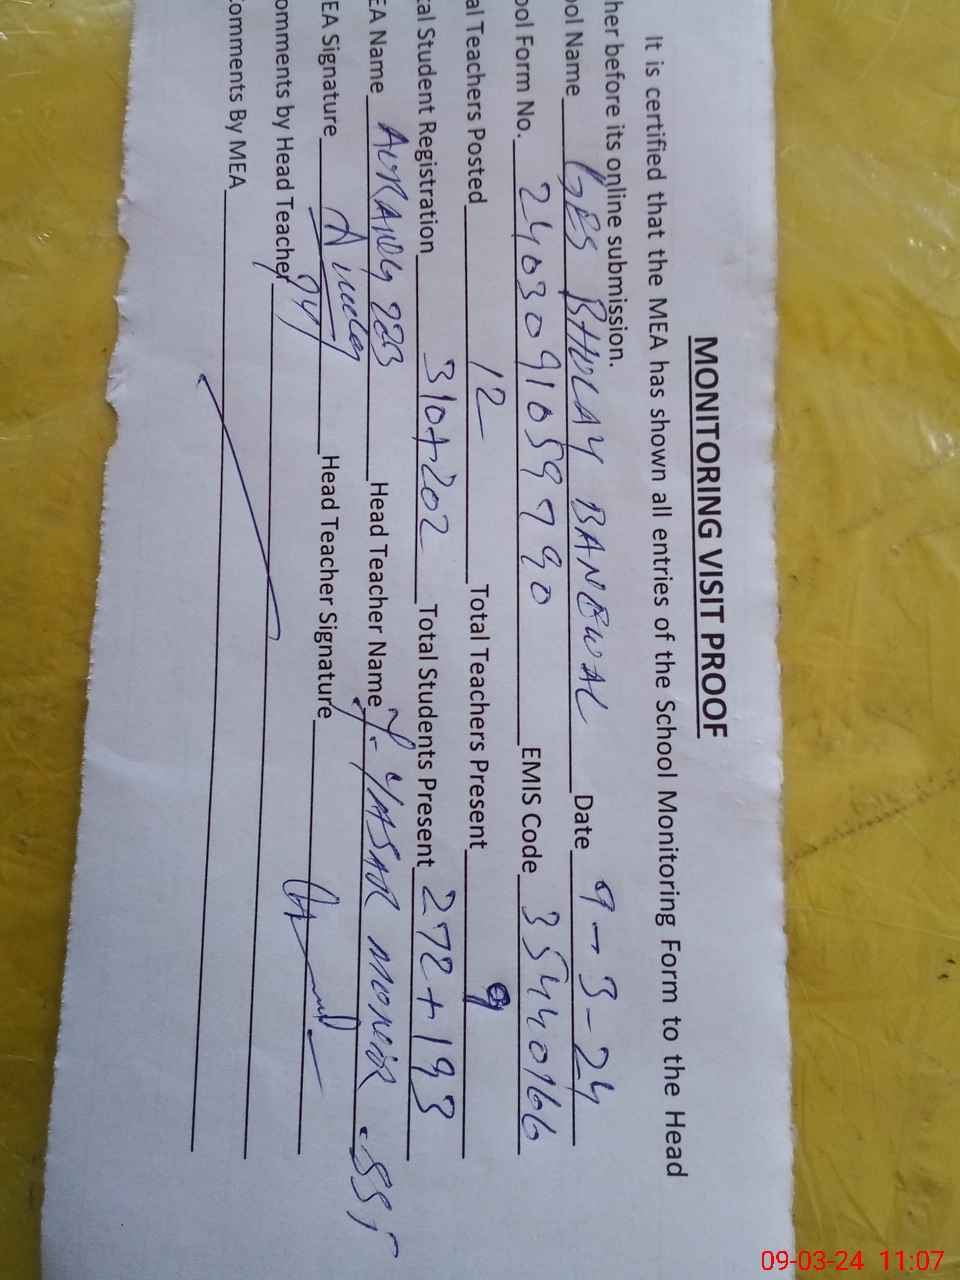 MONITORING VISIT PROOF
It is certified that the MEA has shown all entries of the School Monitoring Form to the Head
her before its online submission.
ool Name GES BHOLAY BANEWAL Date 9-3-24
ool Form No. EMIS Code 35440166
al Teachers Posted 12 Total Teachers Present 9
tal Student Registration 310+202 Total Students Present 272+193
EA Name Head Teacher Name YASAR MONEER SST
EA Signature Head Teacher Signature
omments by Head Teacher
omments By MEA
09-03-24 11:07